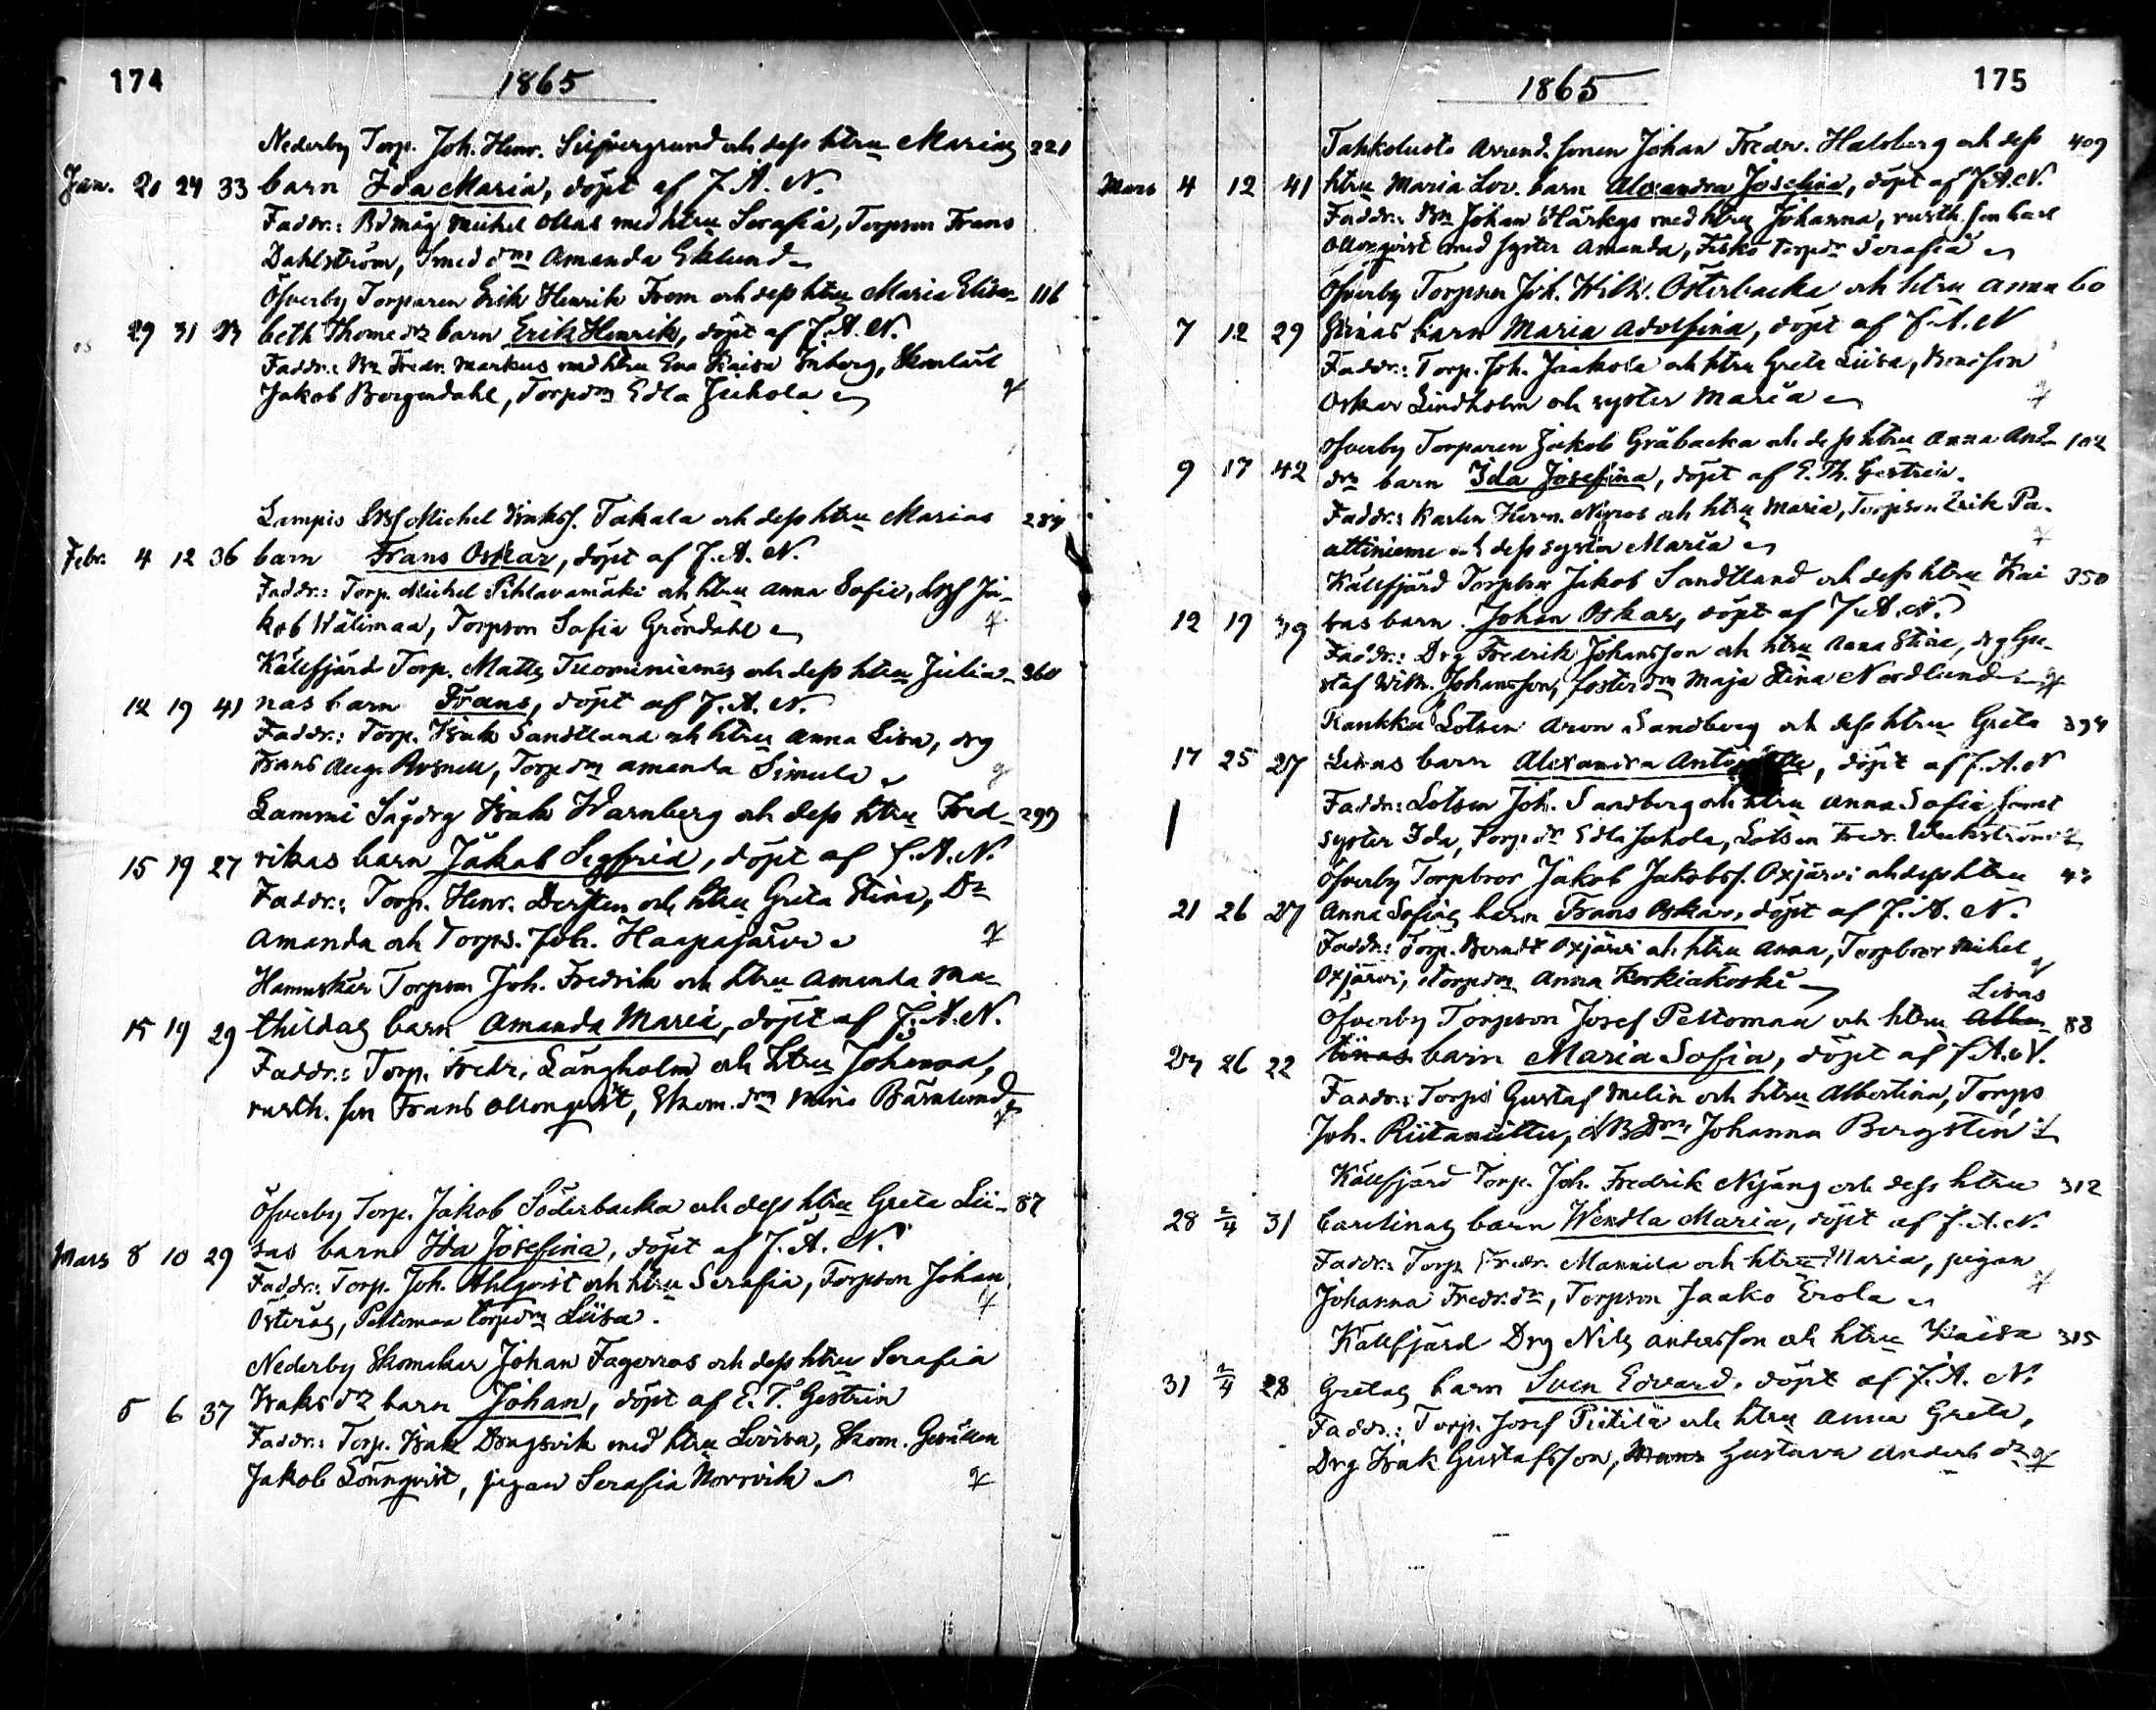 174
1865
Nederby Torp. Joh. Henr. Silfvergrund och dess htru Marias 221
Jan. 20 24 33 barn Ida Maria, döpt af J. A. N.
Faddr.: Bdmåg Michel Ollas med htru Serafia, Torpson Frans
Dahlström, Smed dm Amanda Eklund
Öfverby Torparen Erik Henrik From och dess htru Maria Elisa- 116
29 31 23 beth Thomedr barn Erik Henrik, döpt af J. A. N.
Faddr.: Bn Fredr. Markus med htru Eva Kaisa Inberg, Skomlärl
Jakob Bergendahl, Torpdm Edla Juhola
Lampis Michel Isaksf. Takala och dess htru Marias 284
Febr. 4 12 36 barn Frans Oskar, döpt af J. A. N.
Faddr.: Torp. Michel Pihlavamäki och htru Anna Sofia, Ja-
kob Wälimaa, Torpson Sofia Gröndahl
Källfjärd Torp. Matts Tuominiemis och dess htru Julia- 360
12 19 41 nas barn Frans, döpt af J. A. N.
Faddr.: Torp. Isak Sandstrand och htru Anna Lisa, drg
Frans Aug. Rosnell, Torpdm Amanda Simula
Lammi Sågdrg Isak Warnberg och dess htru Fred- 299
15 19 27 rikas barn Jakob Segfrid, döpt af J. A. N.
Faddr.: Torp. Henr. Dersten och htru Greta Stina, Dr
Amanda och Torps. Joh. Haapajärvi
Hamnskär Torpson Joh. Fredrik och htru Amanda Ma-
15 19 29 thildas barn Amanda Maria, döpt af J. A. N.
Faddr.: Torp. Fredr. Långholm och htru Johanna,
rusth. son Frans Ollonqvist, Skom. dm Mina Bärnlund
Öfverby Torp. Jakob Söderbacka och dess htru Greta Lii- 87
Mars 8 10 29 sas barn Ida Josefina, döpt af J. A. N.
Faddr.: Torp. Joh. Ahlqvist och htru Serafia, Torpson Johan
Österås, Peltomaa Torpdm Liisa.
Nederby Skomakar Johan Fagerroos och dess htru Serafia
5 6 37 Isaks dr barn Johan, döpt af E. T. Gestrin
Faddr.: Torp. Isak Drugsvik med htru Lovisa, Skom. Gesällen
Jakob Lönnqvist, pigan Serafia Norrvik
1865
175
Tahkoluoto Arrend. sonen Johan Fredr. Halsberg och dess 409
Mars 4 12 41 htru Maria Lov. barn Alexandra Josefina, döpt af J. A. N.
Faddr.: Bn Johan Härkys med htru Johanna, rusth. son Carl
Ollonqvist med syster Amanda, Fisko Torpdr Serafia
Öfverby Torpson Joh. Wilh. Österbacka och htru Anna 60
7 12 29 Stinas barn Maria Adolfina, döpt af J. A. N
Faddr.: Torp. Joh. Jaakola och htru Greta Liisa, Bondson
Oskar Lindholm och syster Maria
Öfverby Torparen Jakob Gråbacka och dess htru Anna And- 102
9 17 42 drs barn Ida Josefina, döpt af E. Th. Gestrin.
Faddr.: Karlen Herm. Nyroos och htru Maria, Torpson Erik Pa-
attiniemi och dess syster Maria
Källfjärd Torpbor Jakob Sandstrand och dess htru Kai 350
12 19 39 sas barn Johan Oskar, döpt af J. A. N.
Faddr.: Drg Fredrik Johansson och htru Anna Stina, drg Gu-
staf Wilh. Johansson, fosterdm Maja Stina Nordlund
Kankku Lotsen Aron Sandberg och dess htru Greta 394
17 25 27 Lisas barn Alexandra Antoinette, döpt af J. A. N
Faddr.: Lotsen Joh. Sandberg och htru Anna Sofia samt
syster Ida, Torp. dr Edla Juhola, Lotsen Fredr. Weckström
Öfverby Torpbror Jakob Jakobsf. Oxjärvi och dess htru 43
21 26 27 Anna Sofias barn Frans Oskar, döpt af J. A. N.
Faddr.: Torp. Berndt Oxjärvi och htru Anna, Torpbror Mihel
Oxjärvi, Torpdm Anna Korkiakoski
Lisas
Öfverby Torpson Josef Peltomaa och htru Alber- 88
23 26 22 tinas barn Maria Sofia, döpt af J. A. N.
Faddr.: Torps Gustaf Melin och htru Albertina, Torps
Joh. Riitamitta, Bdm Johanna Bergsten
Källfjärd Torp. Joh. Fredrik Nyäng och dess htru 312
28 2/4 31 Carolinas barn Wendla Maria, döpt af J. A. N.
Faddr.: Torp. Fredr. Mannila och htru Maria, pigan
Johanna Fredr. dr, Torpson Jaako Erola
Källfjärd Drg Nils Andersson och htru Kaisa 315
31 2/4 28 Gretas barn Sven Edvard, döpt af J. A. N.
Faddr.: Torp. Josef Piitilä och htru Anna Greta,
Drg Isak Gustafsson, Gustava Anders dr